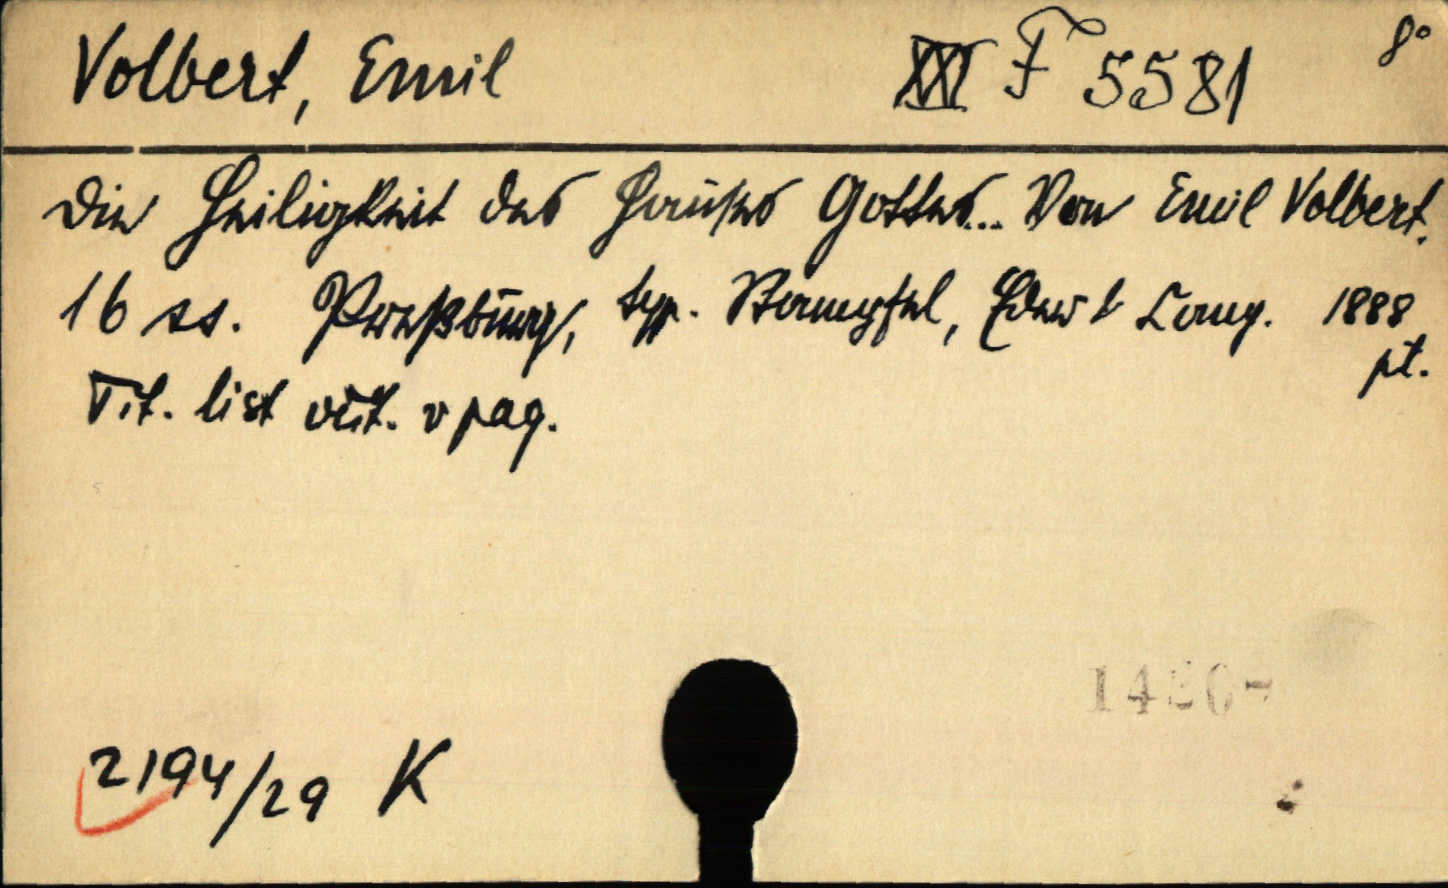 Volbert, Emil XXI F 5581 8°
Die Heiligkeit des Hauses Gottes... Von Emil Volbert.
16 ss. Preßburg, typ. Stampfel, Eder & Comp. 1888
pt.
Tit. list vut. v pag.
2194/29 K